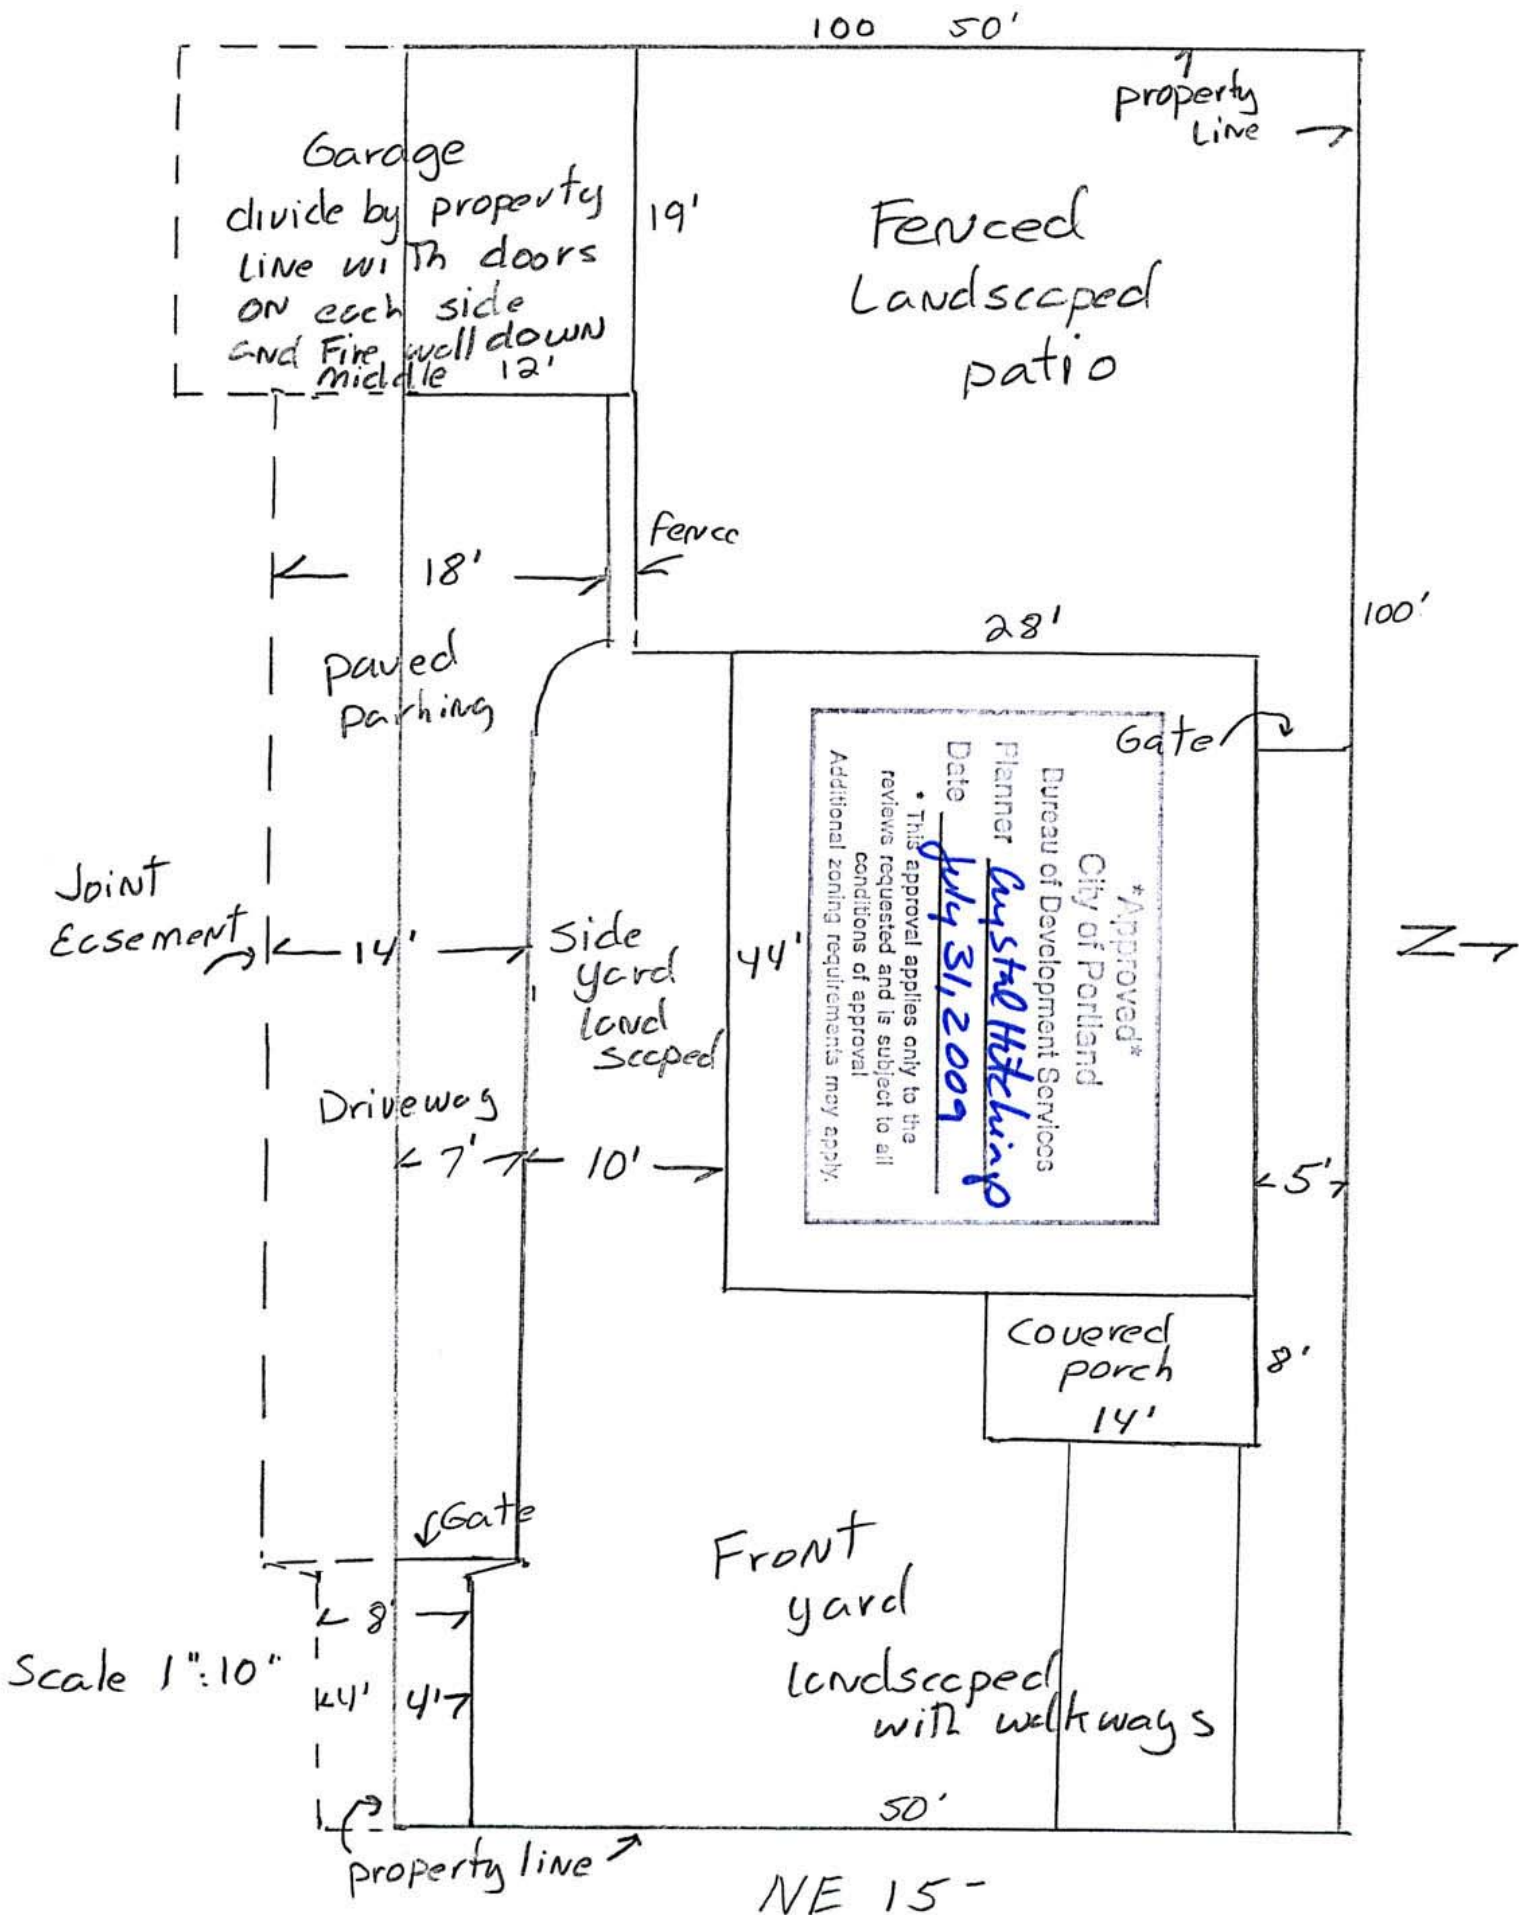 100 50'
property
Line
Garage
divide by property
Line with doors
on each side
and Fire wall down
middle 12'
19'
Fenced
Landscaped
patio
Fence
18'
28'
100'
paved
parking
Gate
*Approved*
City of Portland
Bureau of Development Services
Planner Crystal Hitchings
Date July 31, 2009
* This approval applies only to the
reviews requested and is subject to all
conditions of approval
Additional zoning requirements may apply.
Joint
Easement
14'
Side
yard
land
scaped
44'
Z
Driveway
7'
10'
5'
Covered
porch
8'
14'
Gate
Front
yard
landscaped
with walkways
8'
Scale 1":10"
4' 4'
50'
property line
NE 15